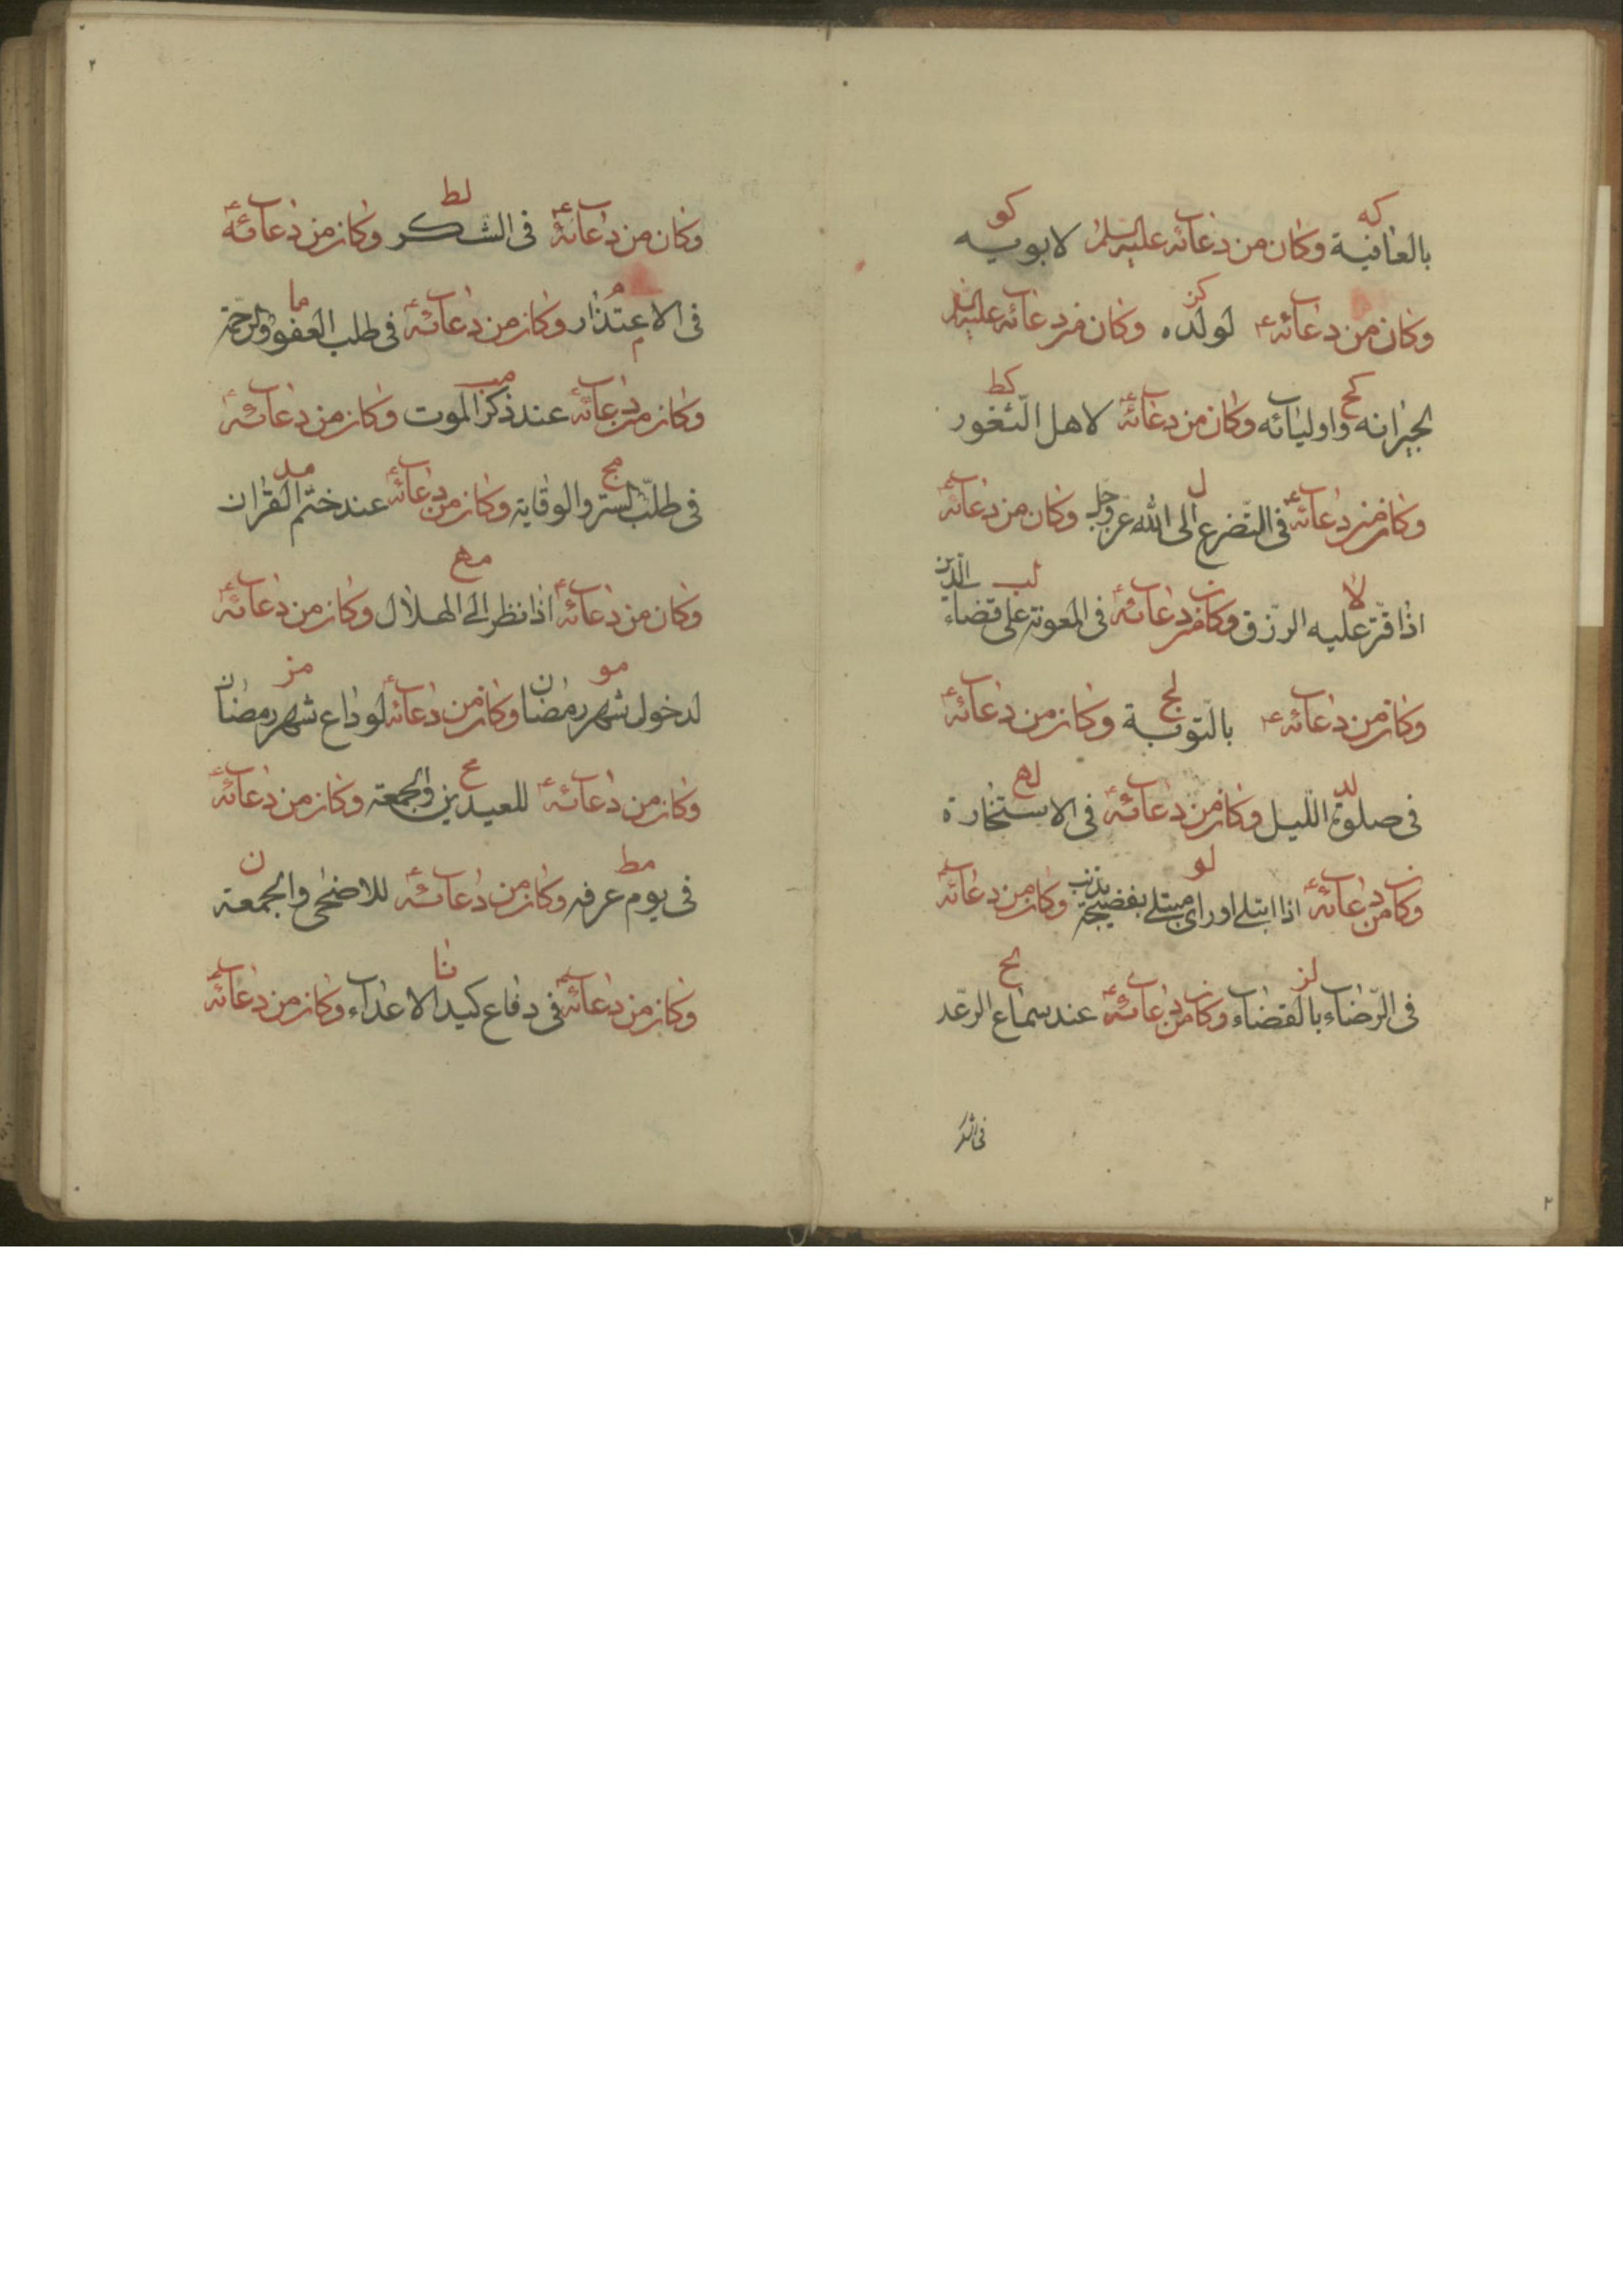 كه كو
بالعافية وكان من دعائه عليه السلم لابويه
كز
وكان من دعائه ع لولده وكان من دعائه عليه السلم
كح كط
لجيرانه واوليائه وكان من دعائه ع لاهل الثغور
ل
وكان من دعائه ع فى التضرع الى الله عز وجل وكان من دعائه ع
لا لب
اذا قتر عليه الرزق وكان من دعائه ع فى المعونة على قضاء الدين
لج
وكان من دعائه ع بالتوبة وكان من دعائه ع
لد له
فى صلوة الليل وكان من دعائه ع فى الاستخارة
لو
وكان من دعائه ع اذا ابتلى او راى مبتلى بفضيحة بذنب وكان من دعائه ع
لز لح
فى الرضاء بالقضاء وكان من دعائه ع عند سماع الرعد
فى الشكر
٢
٢
لط
وكان من دعائه ع فى الشكر وكان من دعائه ع
م ما
فى الاعتذار وكان من دعائه ع فى طلب العفو والرحمة
مب
وكان من دعائه ع عند ذكر الموت وكان من دعائه ع
مج مد
فى طلب الستر والوقاية وكان من دعائه ع عند ختم القران
مه
وكان من دعائه ع اذا نظر الى الهلال وكان من دعائه ع
مو مز
لدخول شهر رمضان وكان من دعائه ع لوداع شهر رمضان
مح
وكان من دعائه ع للعيدين والجمعة وكان من دعائه ع
مط ن
فى يوم عرفه وكان من دعائه ع للاضحى والجمعة
نا
وكان من دعائه ع فى دفاع كيد الاعداء وكان من دعائه ع